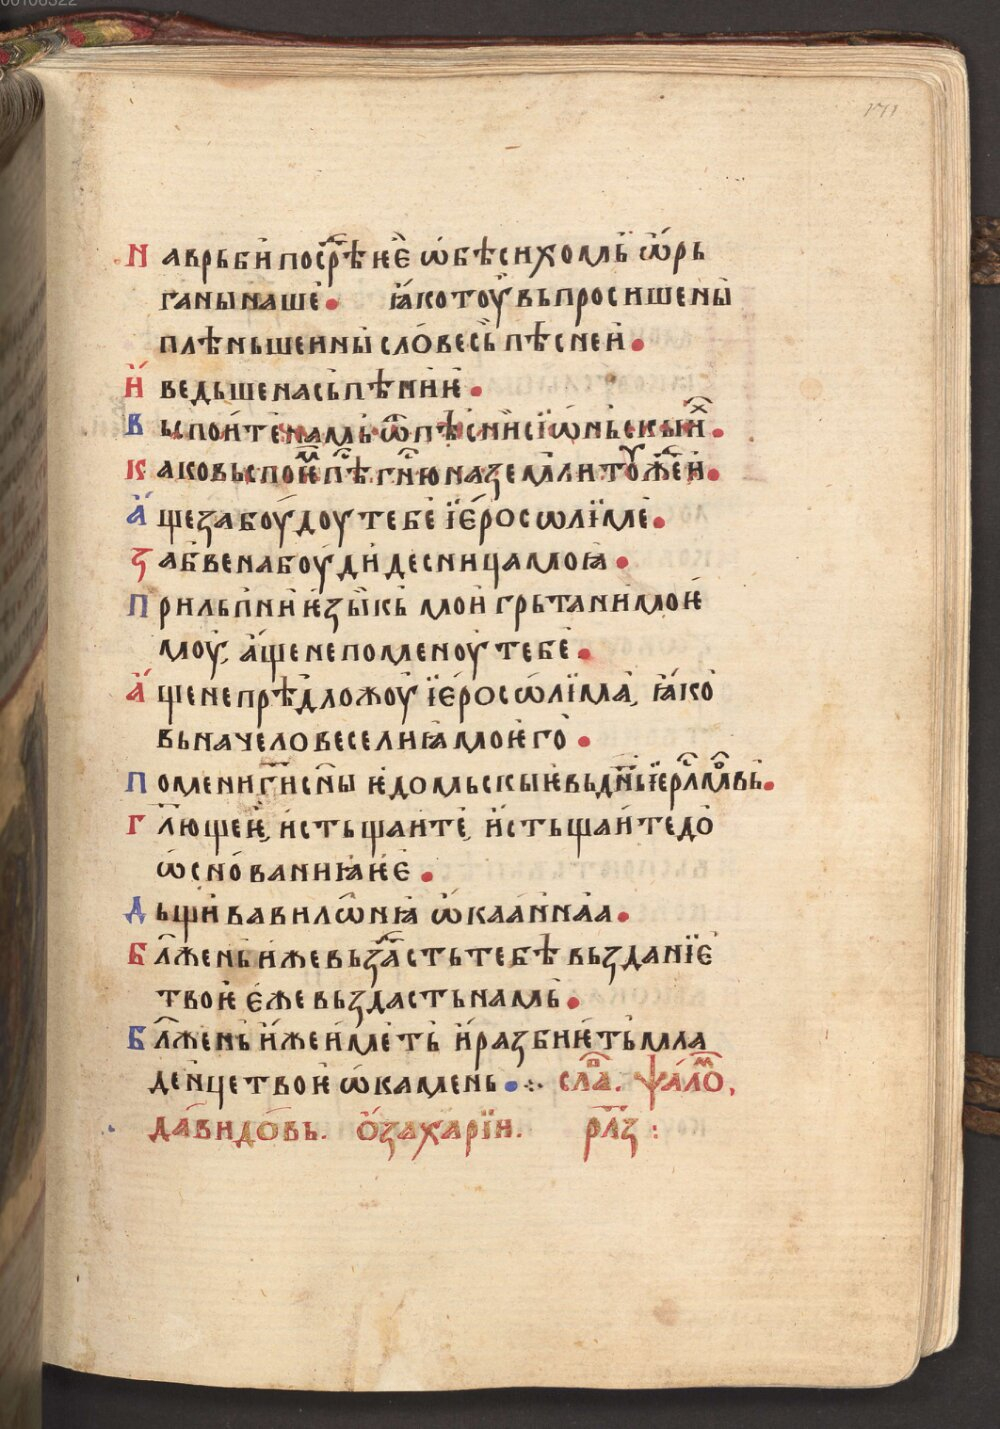 00106322
171
На врьби посрѣ ѥѐ ѡбѣсихомь ѡ҆рь
ганы наше • ꙗко тоу въпросише ны
плѣньшеины словесь пѣсней •
И ведьше нась пѣнїѥ •
Вьспоите намь ѿ пѣсны сїѡньскыи҃х •
Како вьспоѥ҃м пѣ҃ гн҃ю на земли тоуж҃ей •
Аще забоудоу тебе їеросѡлїме •
Забвена боуди десница моꙗ •
Прильпни ѥзыкь мои грьтани моѥ
моу, аще не поменоу тебе •
Аще не прѣдложоу їеросѡлїма, ꙗко
вь начело веселиꙗ моѥго •
Помени г҃и сн҃ы ѥдомьскыѥ вь дн҃ь їерл҃мвь •
Гл҃ющеѥ, истьщаите, истьщаите до
ѡснованиꙗ ѥѐ •
Дьщи вавилѡнꙗ ѡкааннаа •
Бл҃жень иже вьздасть тебѣ вьзданїе
твоѥ еже вьздасть намь •
Бл҃жень иже иметь и разбиѥть мла
денце твоѥ ѡ камень • ⁘ сла҃в. ѱало҃м,
давидовь. ѻ захарїи. рл҃з :